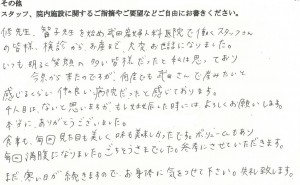 その他
スタッフ、院内施設に関するご指摘やご要望などご自由にお書きください。
修先生、智子先生を始め武田産婦人科医院で働くスタッフさん
の皆様、検診から、お産まで、大変お世話になりました。
いつも明るく笑顔の多い皆様だったと私は思っており
今気から来たのですが、何度でも武田さんで産みたいと
感じるくらい仲の良い病院だったと感じております。
4人目は、ないと思いますが もし妊娠した時にはよろしくお願いします。
本当にありがとうございました。
食事も、毎回見た目も美しく味も美味しかったです。ボリュームもあり
毎回満腹になりました。ごちそうさまでした。参考にさせていただきます。
まだ寒い日が続きますので、お身体に気をつけて下さい。失礼致します。